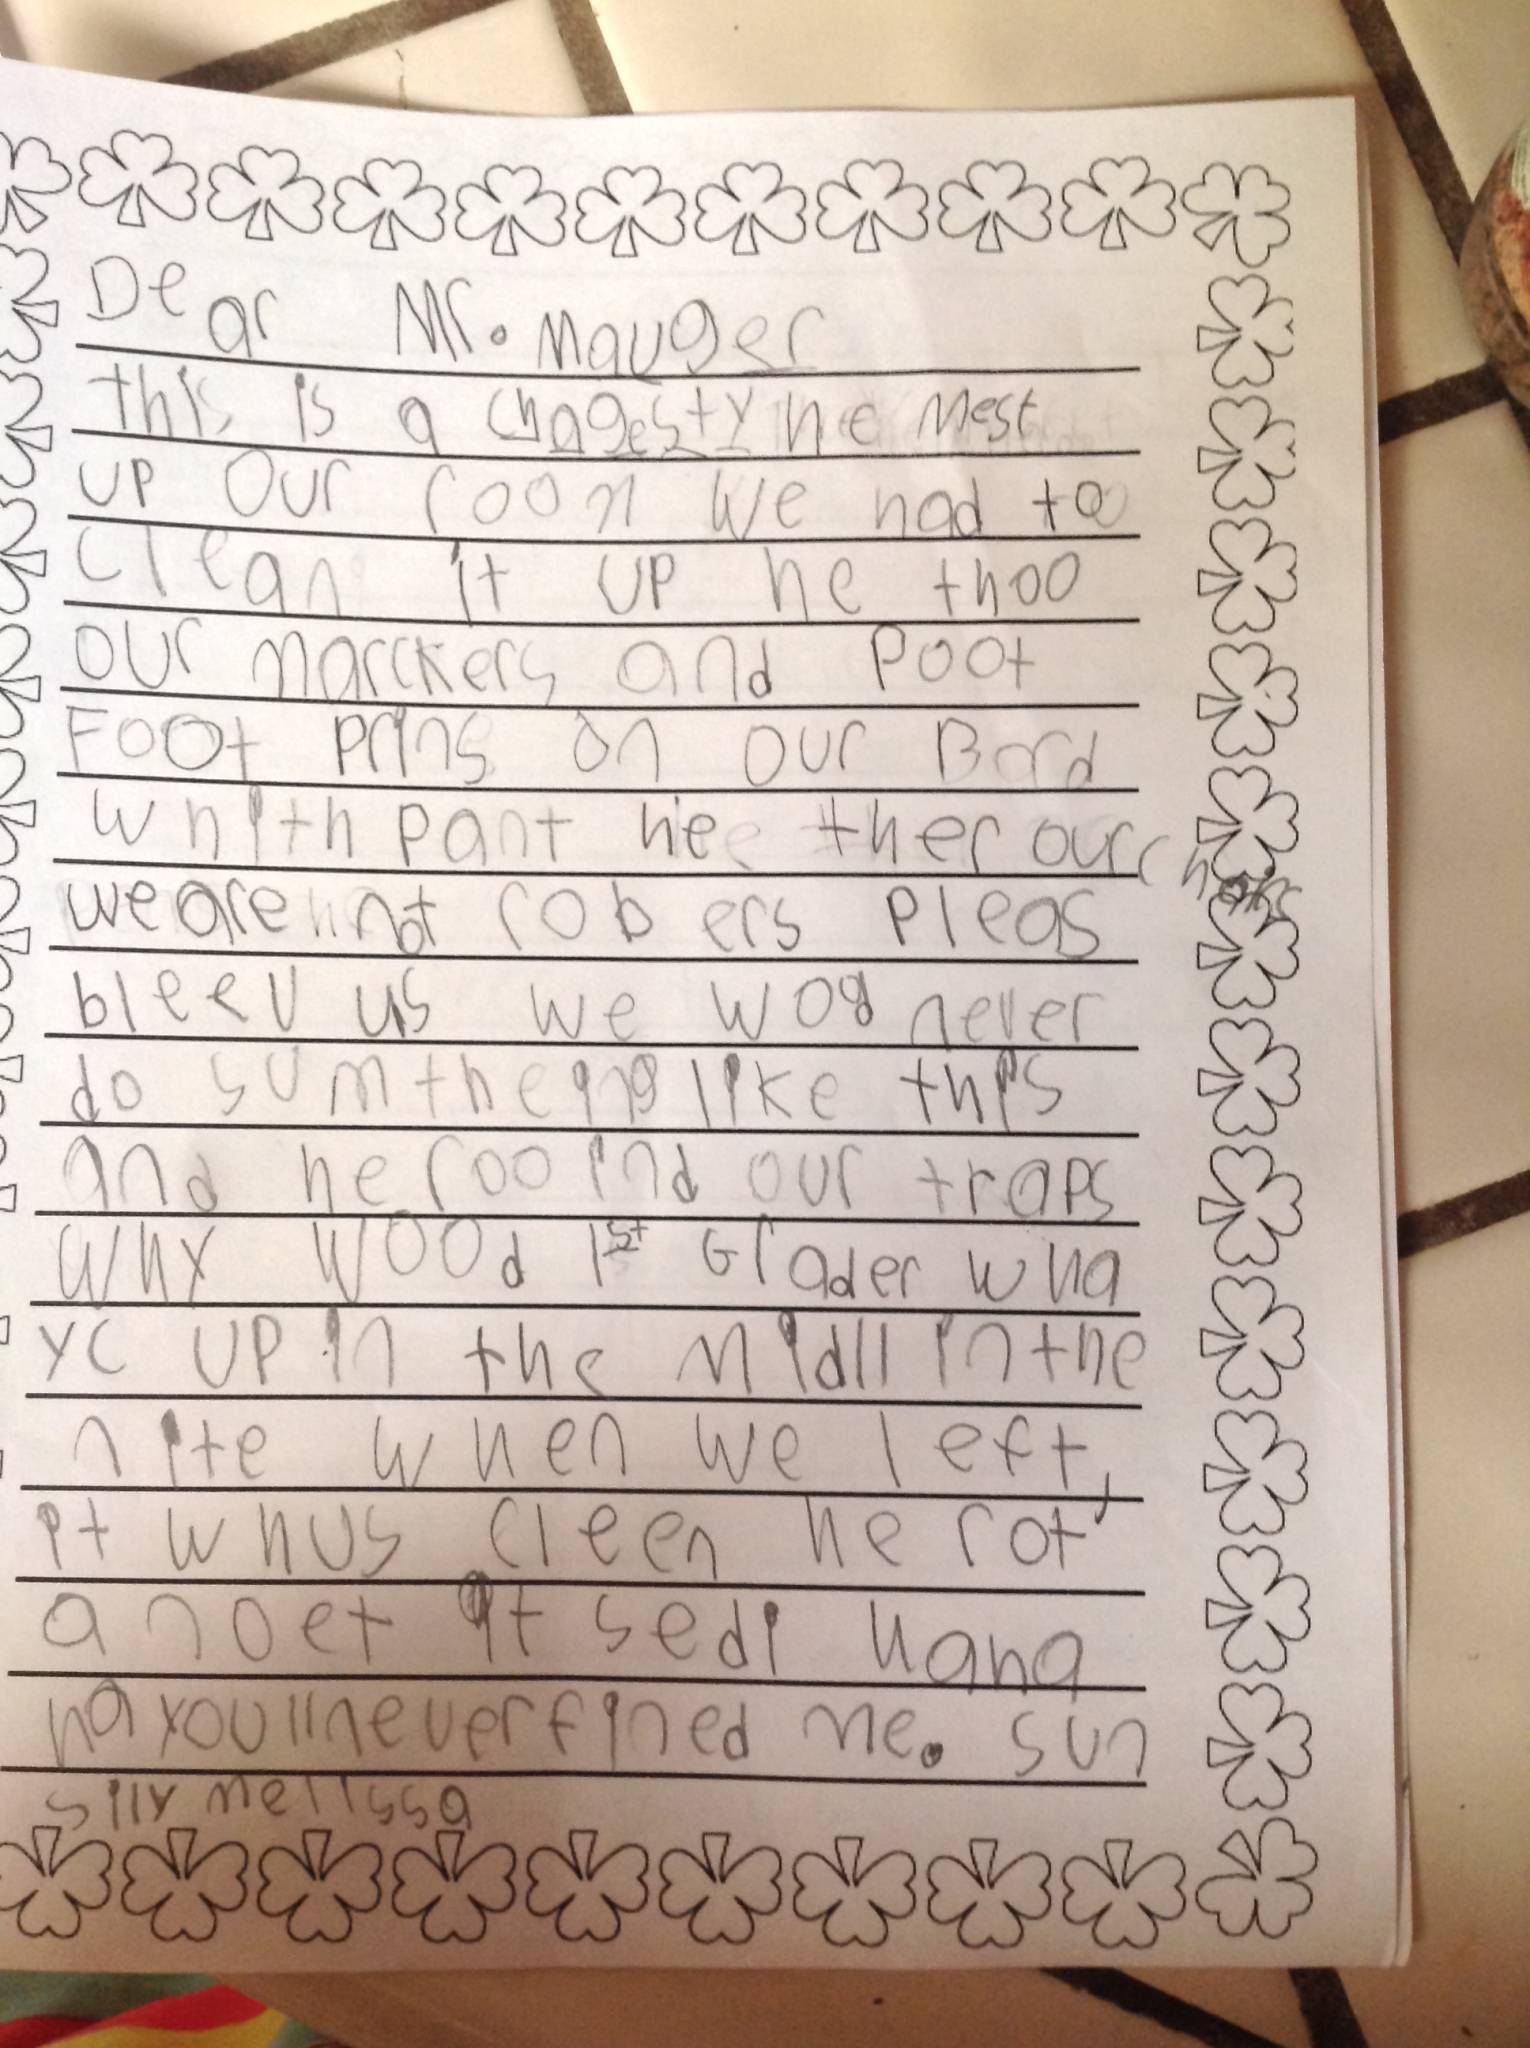 Dear Mr. Mauger
this is a chagesty he mest
up our room we had to
clean it up he thoo
our marckers and poot
Foot prins on our Bord
whith pant hee ther our chairs
we are not robers pleas
bleev us we wod never
do sumtheing like this
and he rooind our traps
why wood 1st Grader wha
yc up in the midll in the
nite when we left,
it whus cleen he rot
a noet it sedi hana
ha youll never fined me. sun
silly melissa